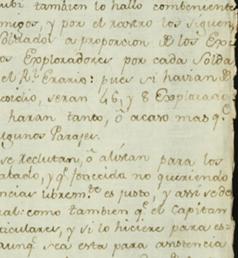 tambien lo hallo combeniente
migos, y por el rastro los siguen
Soldados a proporsion de los Expl
os Exploradores por cada Solda
el Rl. Erario: pues si havian d
seran 46, y 8 Explorado
haran tanto, ó acaso mas q.e
lgunos Parajes.
se Reclutan, ó alistan para los
atado, y q.e no queriendo
ncias librem.te es justo, y assi se de
al: como tambien q.e el Capitan
ticulares, y si lo hiciere para es-
aunq.e sea esta para asistencia